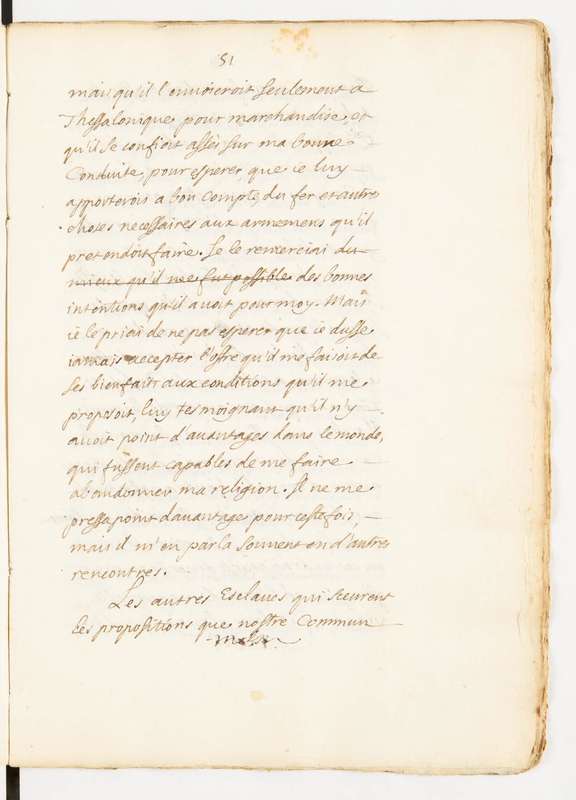 51
mais qu'il l'enuoieroit seulement a
Thessalonique pour marchandise, et
qu'il se confioit assés sur ma bonne
Conduite, pour esperer que ie luy
apporterois a bon compte, du fer et autre
choses necessaires aux armemens qu'il
pretendoit faire. Je le remerciai du
mieux qu'il me fut possible des bonnes
intentions qu'il auoit pour moy. Mais
ie le priai de ne pas esperer que ie dusse
iamais accepter l'ofre qu'il me faisoit de
ses bienfaits aux conditions qu'il me
proposoit, luy tesmoignant qu'il n'y
auoit point d'auantages dans le monde,
qui fussent capables de me faire
abandonner ma religion. Il ne me
pressa point dauantage pour ceste fois,
mais il m'en parla souuent en d'autres
rencontres.
Les autres Esclaues qui sceurent
les propositions que nostre Commun